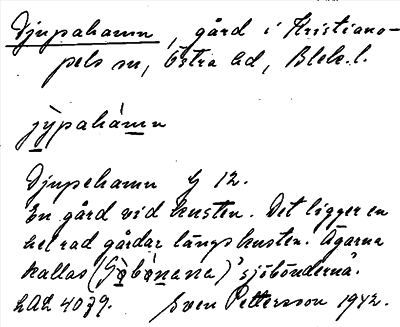 Djupahamn, gård i Kristiano-
pels sn, Östra hd, Blek. l.
jỳpahámn
Djupehamn G 12.
En gård vid kusten. Det ligger en
hel rad gårdar längs kusten. Ägarna
kallas (ʃǿbǿnana) "sjöbönderna".
LAL 4079. Sven Pettersson 1942.